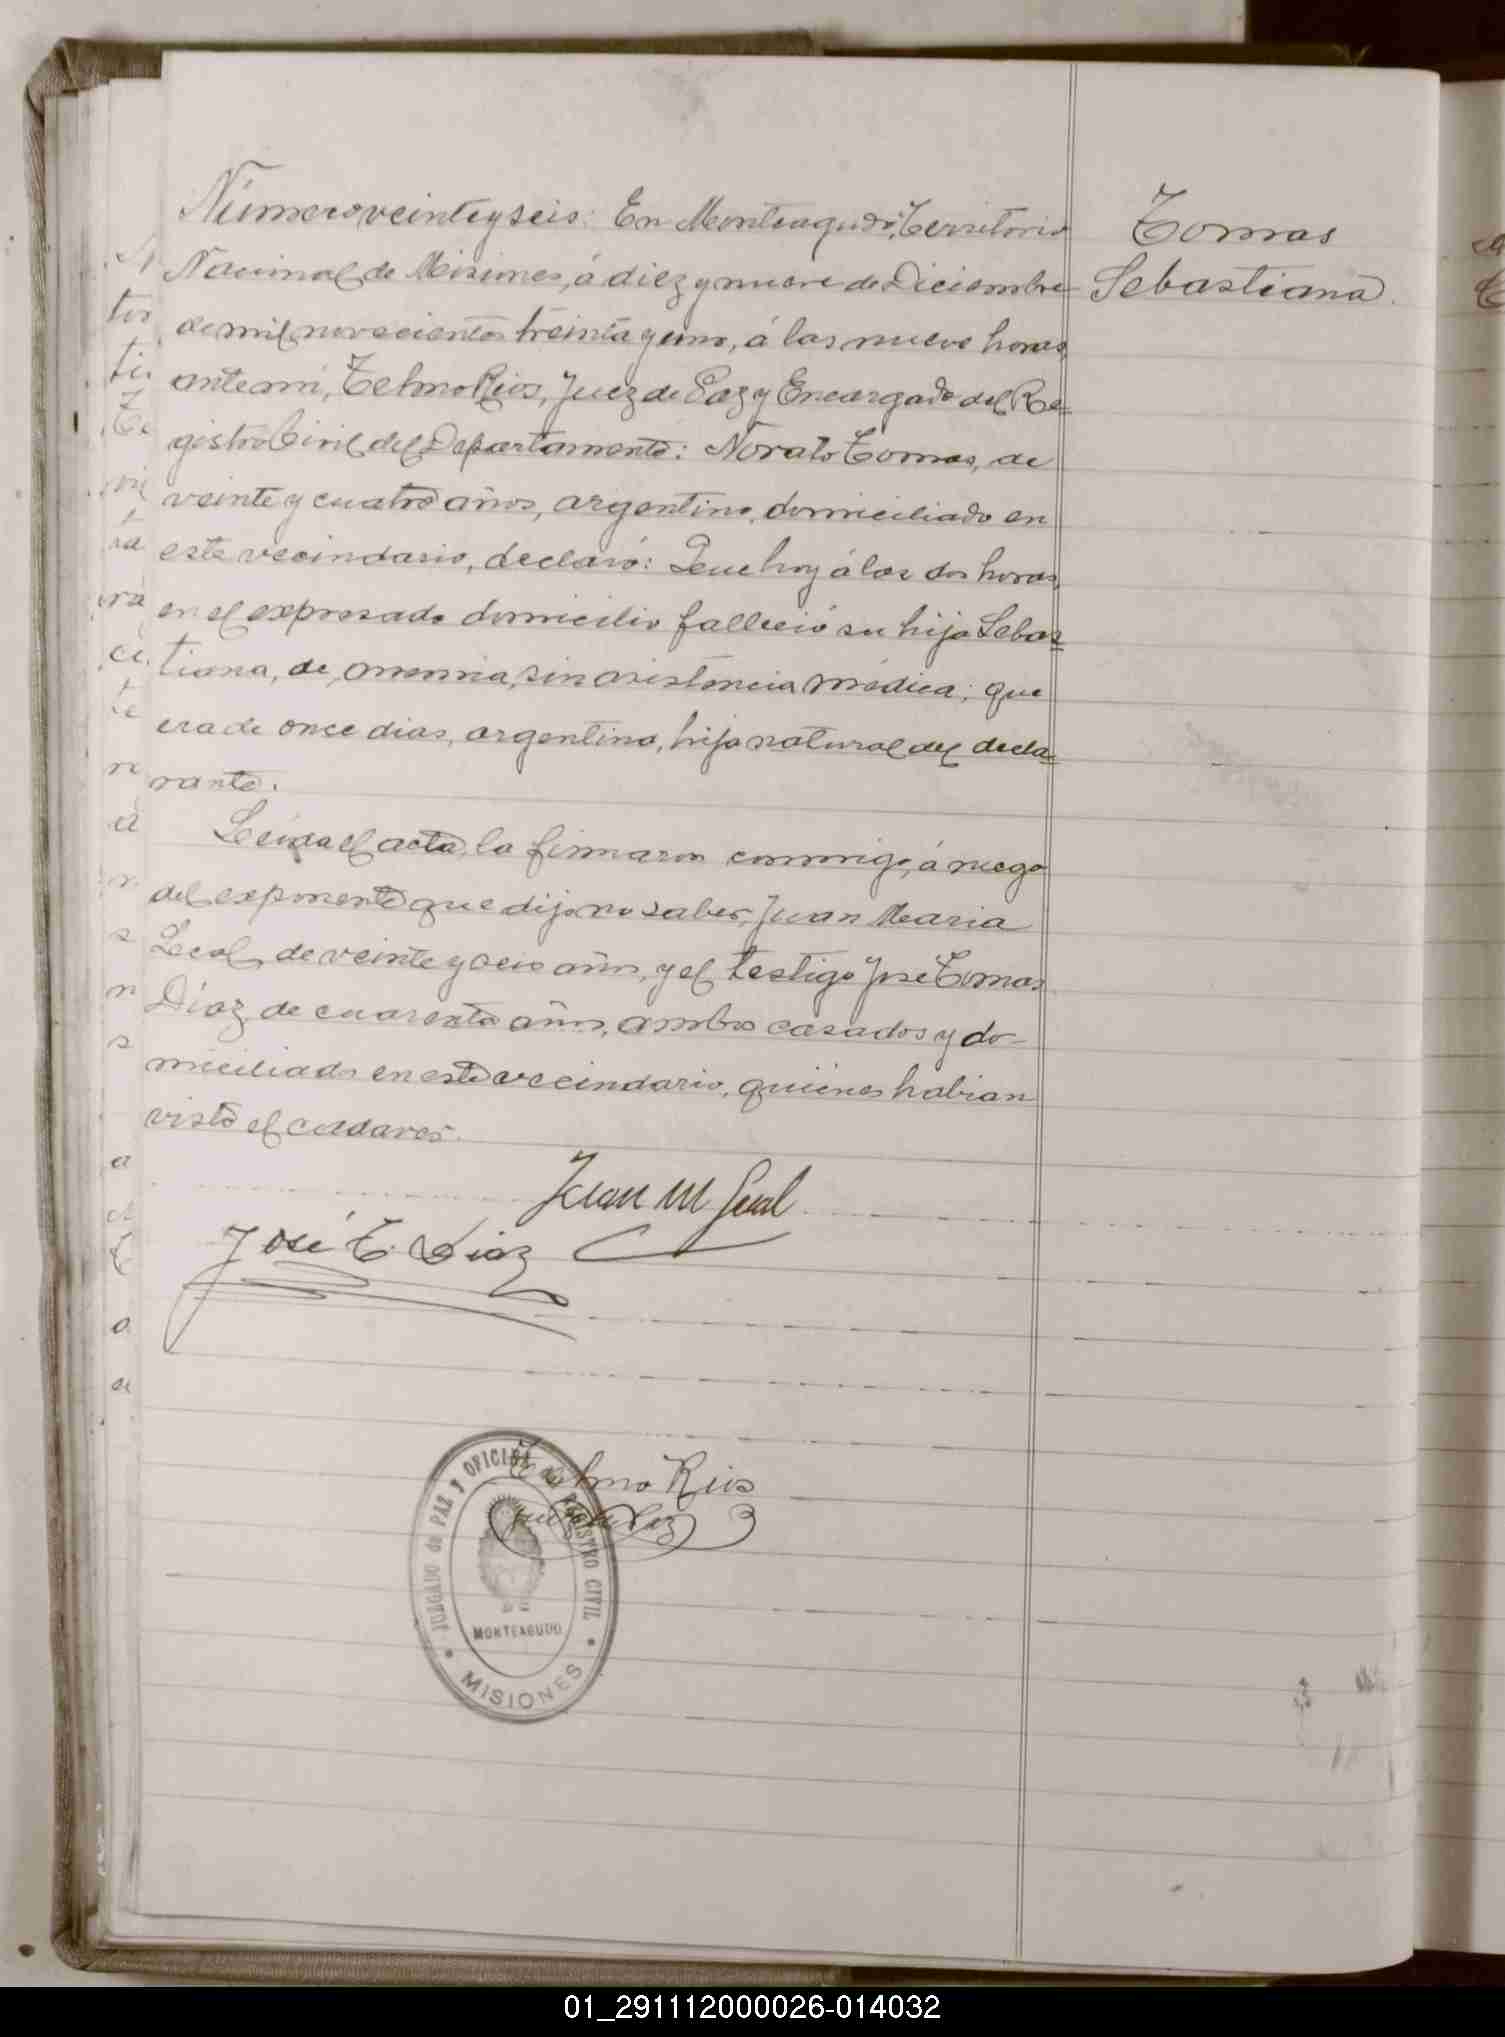 Número veinte y seis: En Monteagudo, Territorio
Nacional de Misiones, á diez y nueve de Diciembre
de mil novecientos treinta y uno, á las nueve horas,
ante mi, Telmo Rios, Juez de Paz y Encargado del Re-
gistro Civil del Departamento: Norato Tomas, de
veinte y cuatro años, argentino, domiciliado en
este vecindario, declaró: Que hoy á las dos horas,
en el expresado domicilio falleció su hija Sebas-
tiana, de anemia, sin asistencia médica; que
era de once dias, argentina, hija natural del decla-
rante.
Leida el acta, la firmaron conmigo, á ruego
del exponente que dijo no saber, Juan Maria
Leal, de veinte y seis años, y el testigo José Tomas
Díaz, de cuarenta años, ambos casados y do-
miciliados en este vecindario, quiénes habian
visto el cadaver.
Juan M Leal
José T. Diaz
Telmo Rios
Juez de Paz
JUZGADO de PAZ y OFICINA de REGISTRO CIVIL
MONTEAGUDO
MISIONES
Tomas
Sebastiana.
01_291112000026-014032